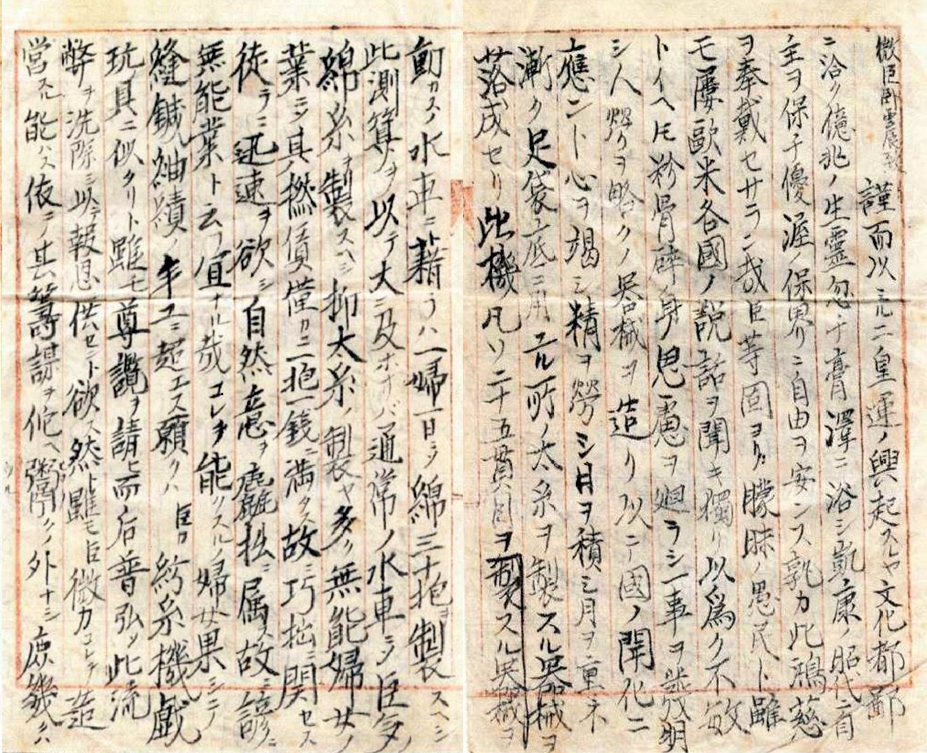 微臣臥雲辰致 謹而以ミルニ皇運ノ興起スルヤ文化都鄙
ニ洽ク億兆ノ生靈忽チ膏澤ニ浴シ凱康ノ昭代ニ自
主ヲ保チ優渥ノ保界ニ自由ヲ安ンス孰カ此鴻慈
ヲ奉戴セサラン哉臣等固ヨリ朦昧ノ愚民ト雖
モ屡歐米各國ノ説話ヲ聞キ獨リ以爲ク不敏
トイヘ𪜈粉骨碎身思慮ヲ廻ラシ一事ヲ発明
シ人勞ヲ略クノ器械ヲ造リ以テ國ノ開化ニ
應ント心ヲ竭シ精ヲ勞シ月ヲ積シ月ヲ重ネ
漸ク足袋底ニ用ユル所ノ太糸ヲ製スル器械ヲ
落成セリ此機凡ソ二十五貫目ヲ製スル器械ヲ
動カスノ水車ニ藉ラハ一婦一日ラ綿三十抱ヲ製スヘシ
此測算ヲ以テ大ニ及ホサバ通常ノ水車ニシ巨多
綿糸ヲ製スヘシ抑太糸ノ製ヤ多ク無能婦女ノ
業ニシ其撚賃僅カニ一抱一銭ニ満タス故ニ巧拙ニ関セス
徒ラニ迅速ヲ欲シ自然意ヲ麁拙ニ属ス故ニ諺ニ
無能業ト云フ宜ナル哉コレヲ能クスルノ婦女果シテ
縫鍼紬績ノ ニ超エス願クハ臣カ紡糸機戯
玩具ニ似タリト雖モ尊讚ヲ請ヒ而后普弘メ此流
弊ヲ洗除シ以テ報恩供セント欲ス然ト雖モ臣微力コレヲ造
営スル能ハス依テ其籌謀ヲ佗ヘ鬻クノ外ナシ庶幾クハ